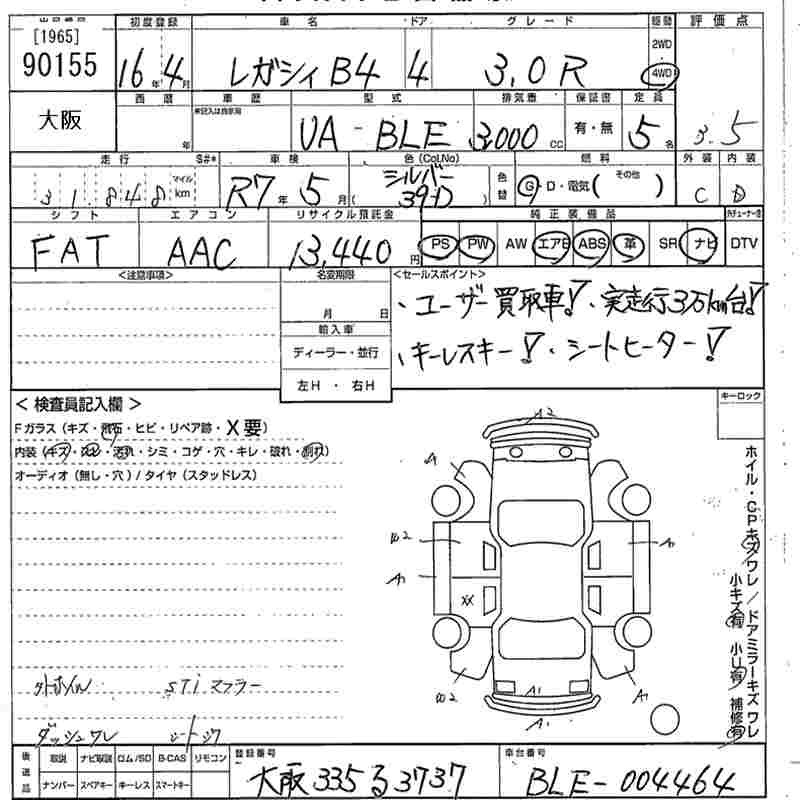 出品番号 初度登録 車名 ドア グレード 駆動 評価点
[1965]
90155 16年4月 レガシィ B4 4 3.0R 2WD 4WD
大阪 西暦 車歴 型式 排気量 保証書 定員
※記入は自家用
年 UA-BLE 3,000cc 有・無 5名 3.5
走行 S#* 車検 色(Col,No) 燃料 外装 内装
31848 マイル km R7年5月 シルバー 39D 色替 G・D・電気( その他 ) C D
シフト エアコン リサイクル預託金 純正装備品
FAT AAC 13,440円 PS PW AW エアB ABS 革 SR ナビ DTV
<注意事項> 名変期限 <セールスポイント>
月 日
輸入車
ディーラー・並行
左H・右H
・ユーザー買取車! ・実走行3万km台!
・キーレスキー! ・シートヒーター!
キーロック
< 検査員記入欄 >
Fガラス(キズ・飛石・ヒビ・リペア跡・X要)
内装(キズ・スレ・汚れ・シミ・コゲ・穴・キレ・破れ・割れ)
オーディオ(無し・穴)/タイヤ(スタッドレス)
A2
A
W2
A1
XX
A1
A1
W2
A1
A1
ホイル・CPキズワレ/ドアミラーキズワレ
小キズ有 小U有 補修有
外ホイル STiマフラー
ダッシュワレ シートシワ
後送品 取説 ナビ取説 ロム/SD B-CAS リモコン
ナンバー スペアキー キーレス スマートキー
登録番号 大阪335る3737
車台番号 BLE-004464